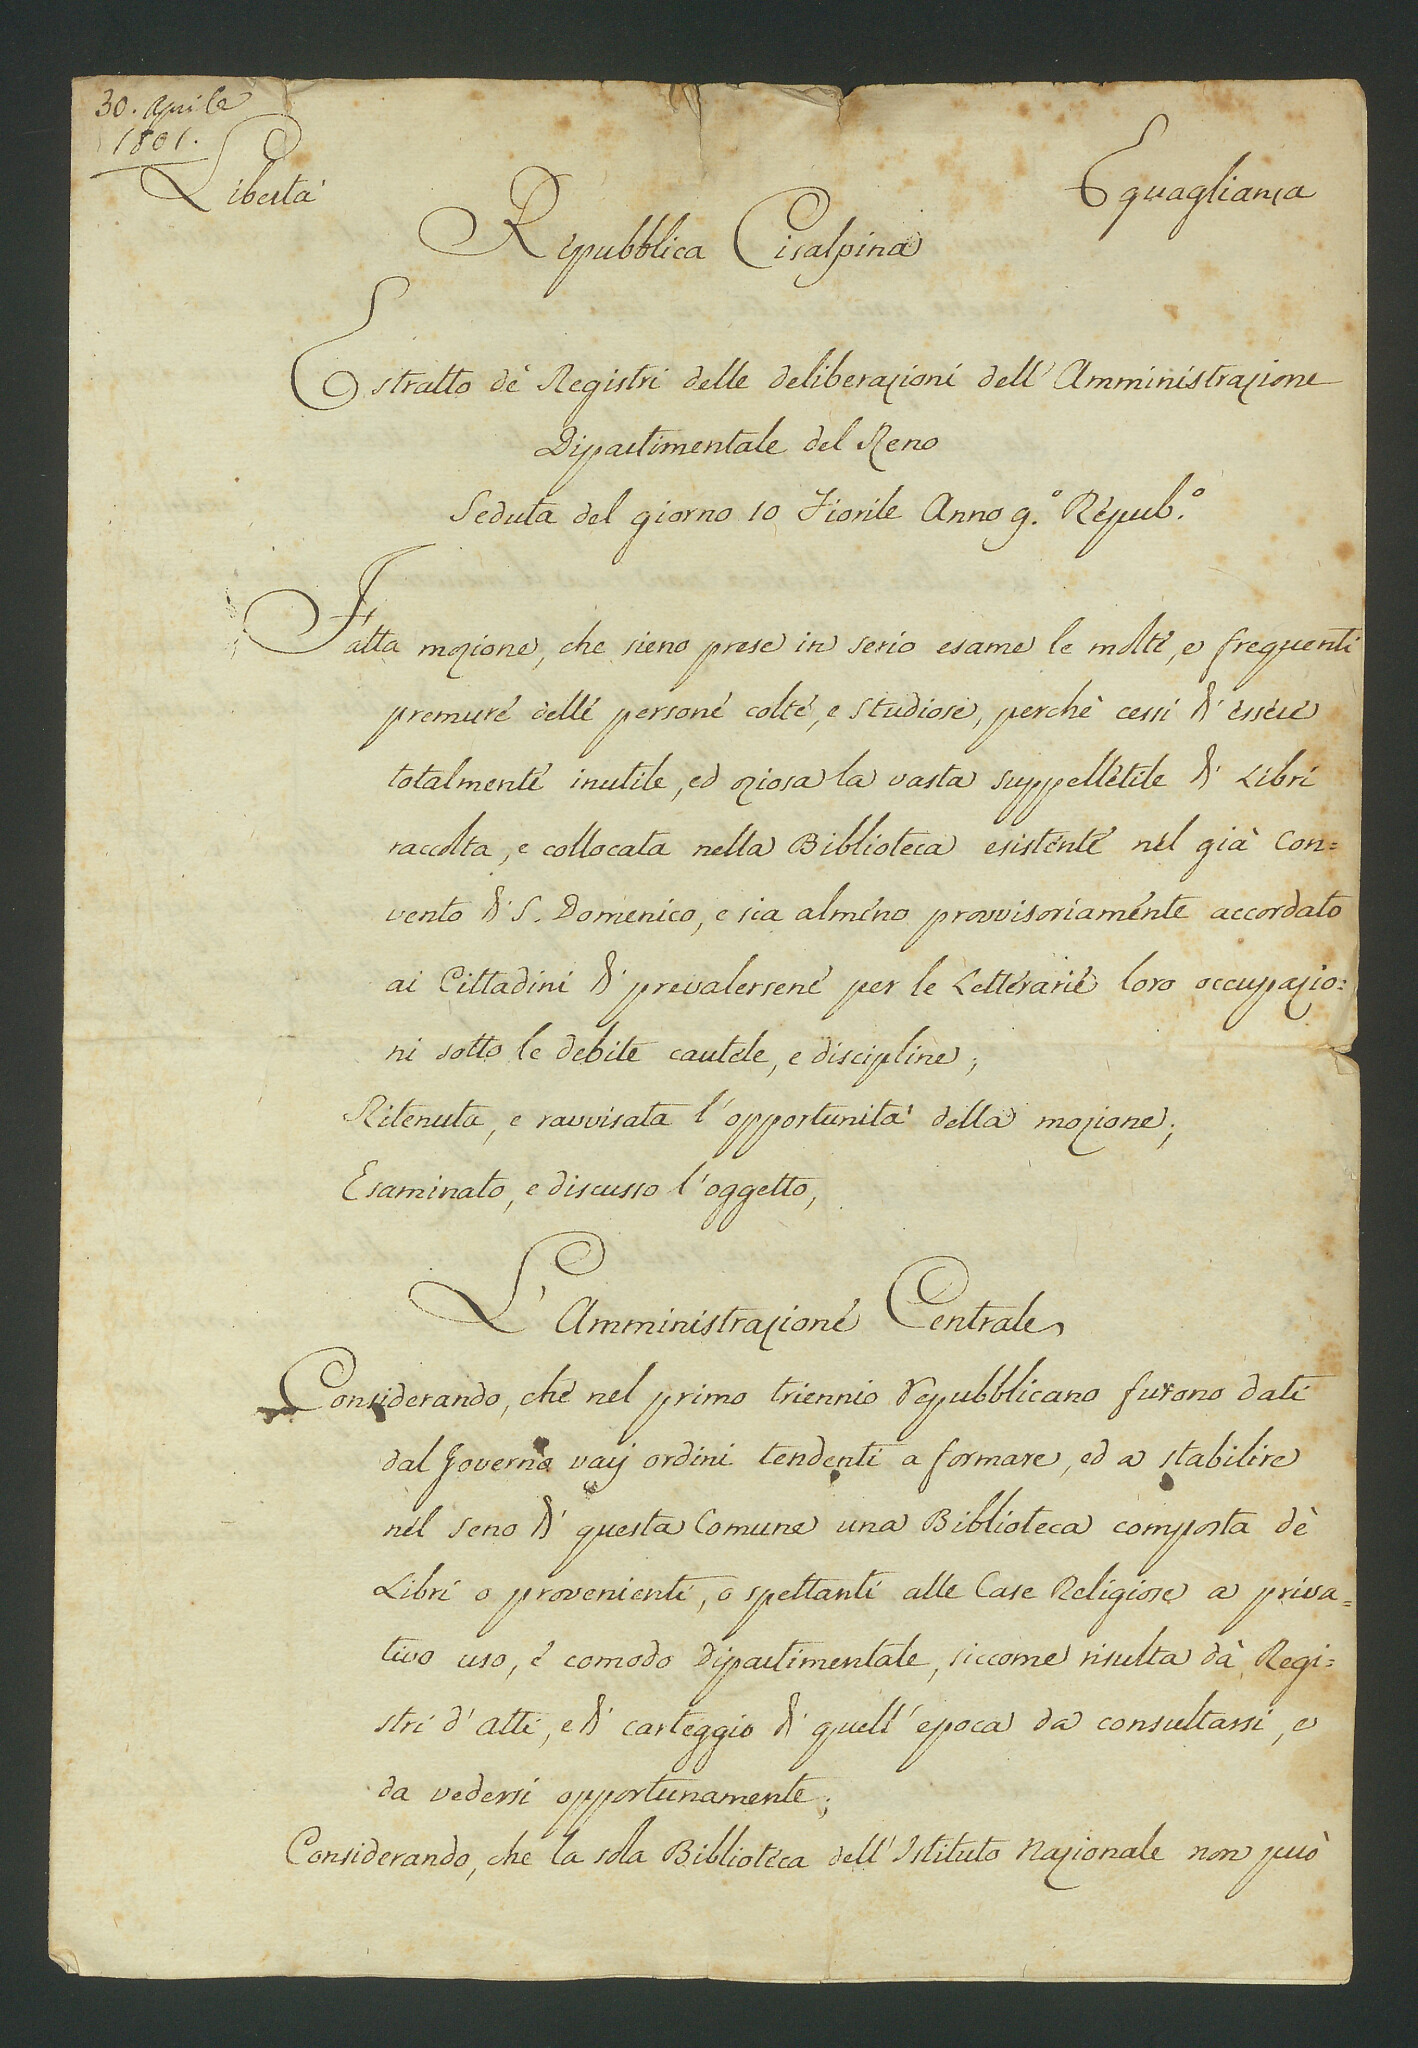 30. Aprile
1801.
Libertà
Eguaglianza
Repubblica Cisalpina
Estratto de' Registri delle deliberazioni dell'Amministrazione
Dipartimentale del Reno
Seduta del giorno 10 Fiorile Anno 9.° Repub.°
Fatta mozione, che sieno prese in serio esame le molte, e frequenti
premure delle persone colte, e studiose, perchè cessi di essere
totalmente inutile, ed oziosa la vasta suppelletile di Libri
raccolta, e collocata nella Biblioteca esistente nel già Con=
vento di S. Domenico, e sia almeno provvisoriamente accordato
ai Cittadini di prevalersene per le Letterarie loro occupazio=
ni sotto le debite cautele, e discipline;
Ritenuta, e ravvisata l'opportunità della mozione;
Esaminato, e discusso l'oggetto,
L'Amministrazione Centrale
Considerando, che nel primo triennio repubblicano furono dati
dal Governo varj ordini tendenti a formare, ed a stabilire
nel seno di questa Comune una Biblioteca composta dè
Libri o provenienti, o spettanti alle Case Religiose a priva=
tivo uso, e comodo Dipartimentale, siccome risulta dà Regi=
stri d'atti, e di carteggio di quell'epoca da consultarsi, e
da vedersi opportunamente;
Considerando, che la sola Biblioteca dell'Istituto Nazionale non può